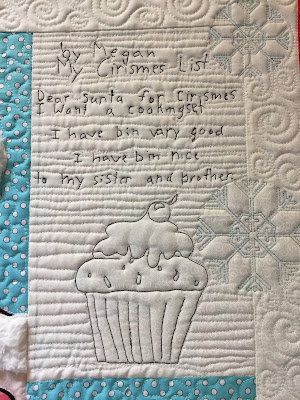 by Megan
My Cirismes List
Dear Santa for Cirismes
I want a cookingset
I have bin vary good
I have bin nice
to my sister and brother